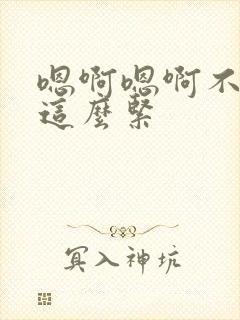 嗯啊嗯啊不
這麼緊
冥入神坑